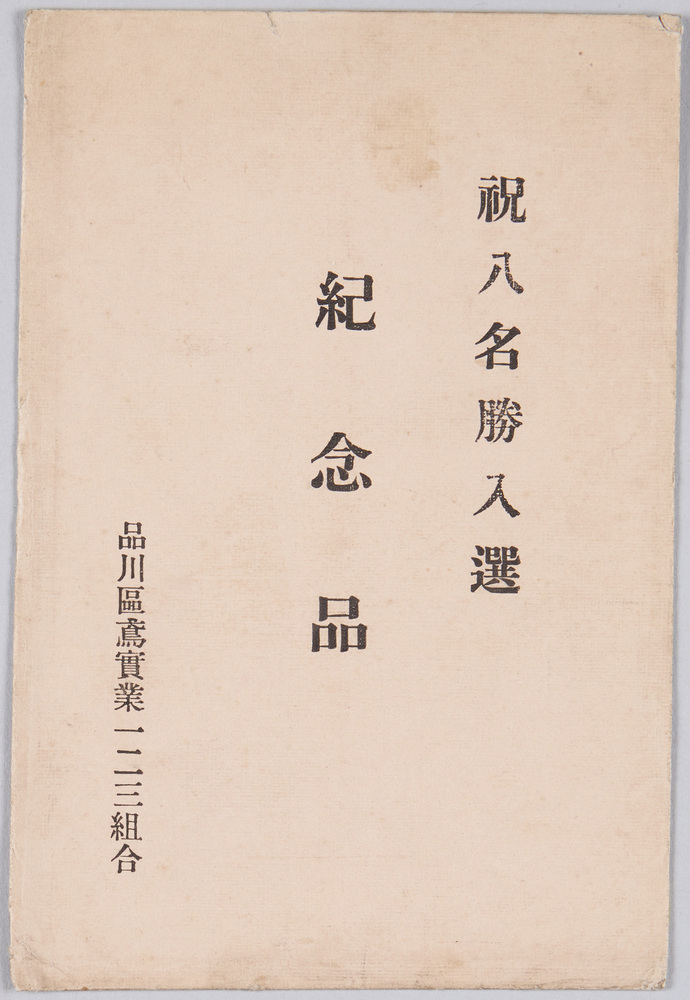 祝八名勝入選
紀念品
品川區鳶實業一二三組合